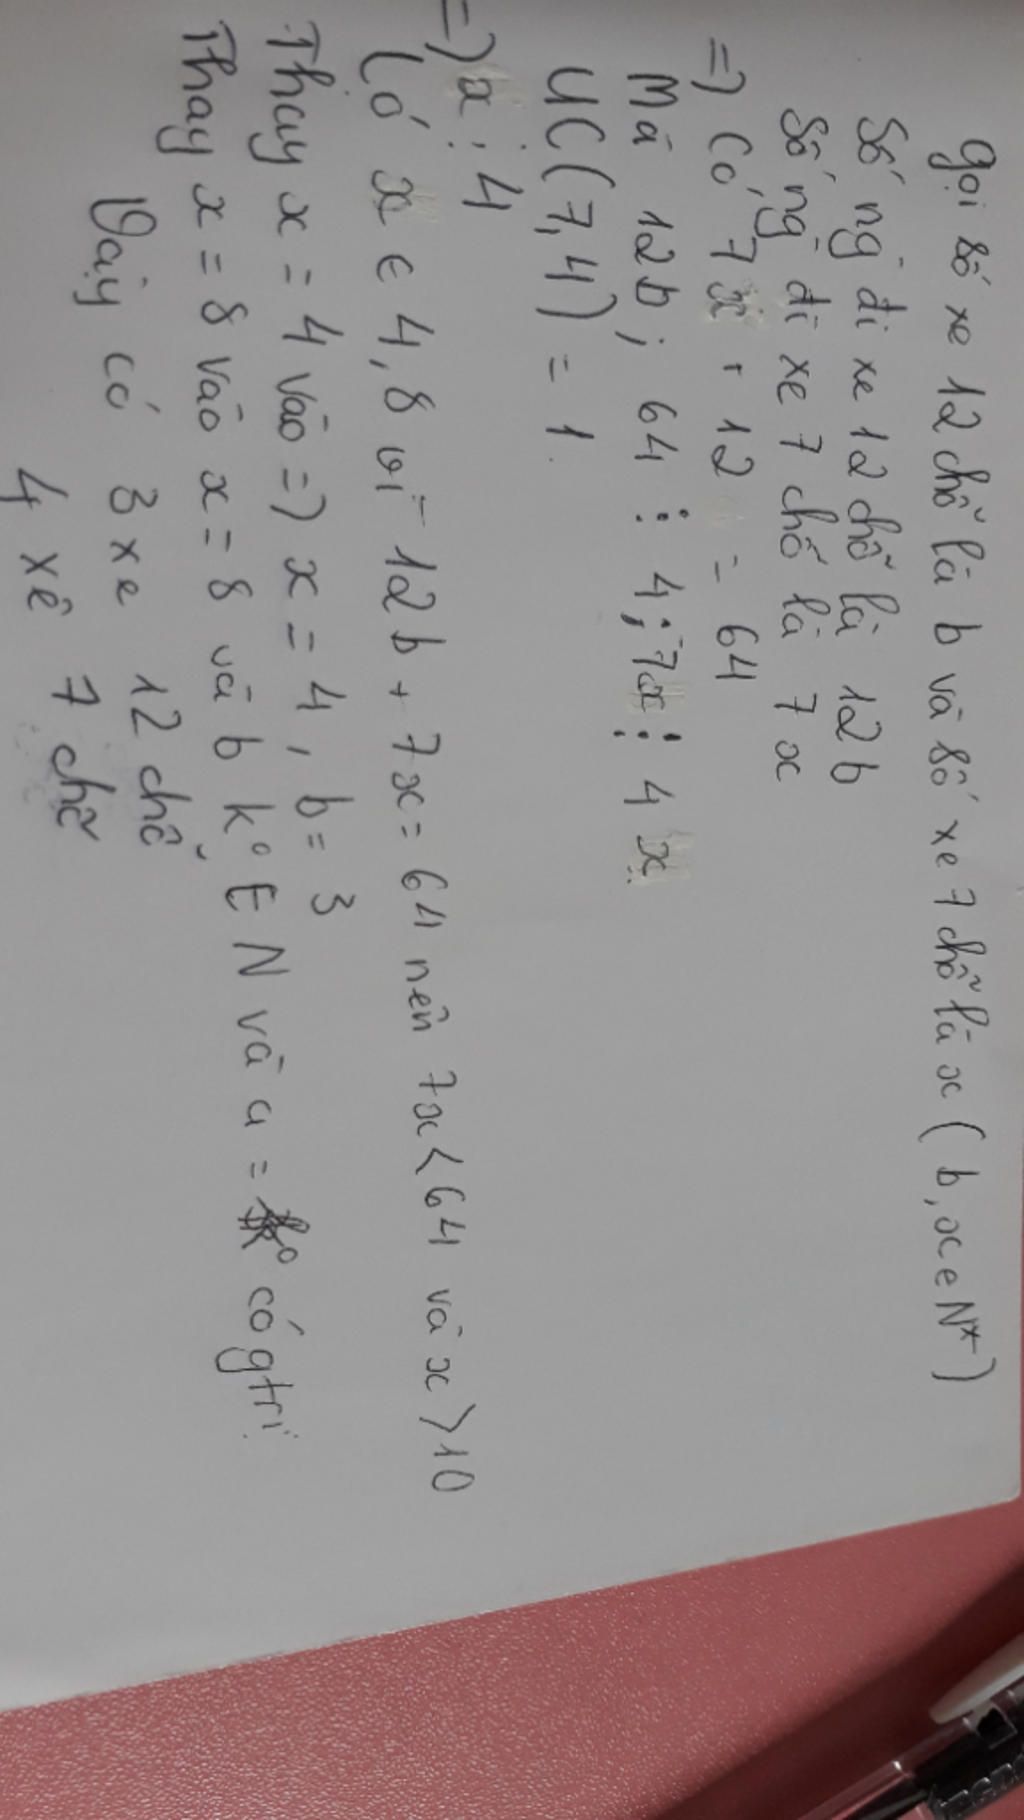 gọi số xe 12 chỗ là b và số xe 7 chỗ là x ( b, x e N* )
Số ng đi xe 12 chỗ là 12b
Số ng đi xe 7 chỗ là 7x
=) Có 7x + 12 = 64
Mà 12b ; 64 ⋮ 4 ; 7x ⋮ 4 x
ƯC (7, 4) = 1.
=) x ⋮ 4
Có x ∈ 4, 8 vì 12b + 7x = 64 nên 7x < 64 và x > 10
Thay x = 4 vào =) x = 4, b = 3
Thay x = 8 vào x = 8 và b k° E N và a = có gtrị
Vậy có 3 xe 12 chỗ
4 xê 7 chỗ